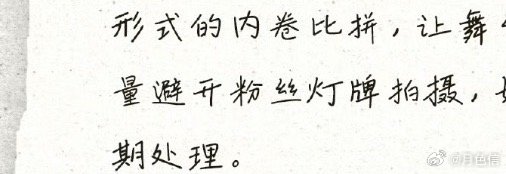 形式的内卷比拼，让舞
量避开粉丝灯牌拍摄，
期处理。
@月色信